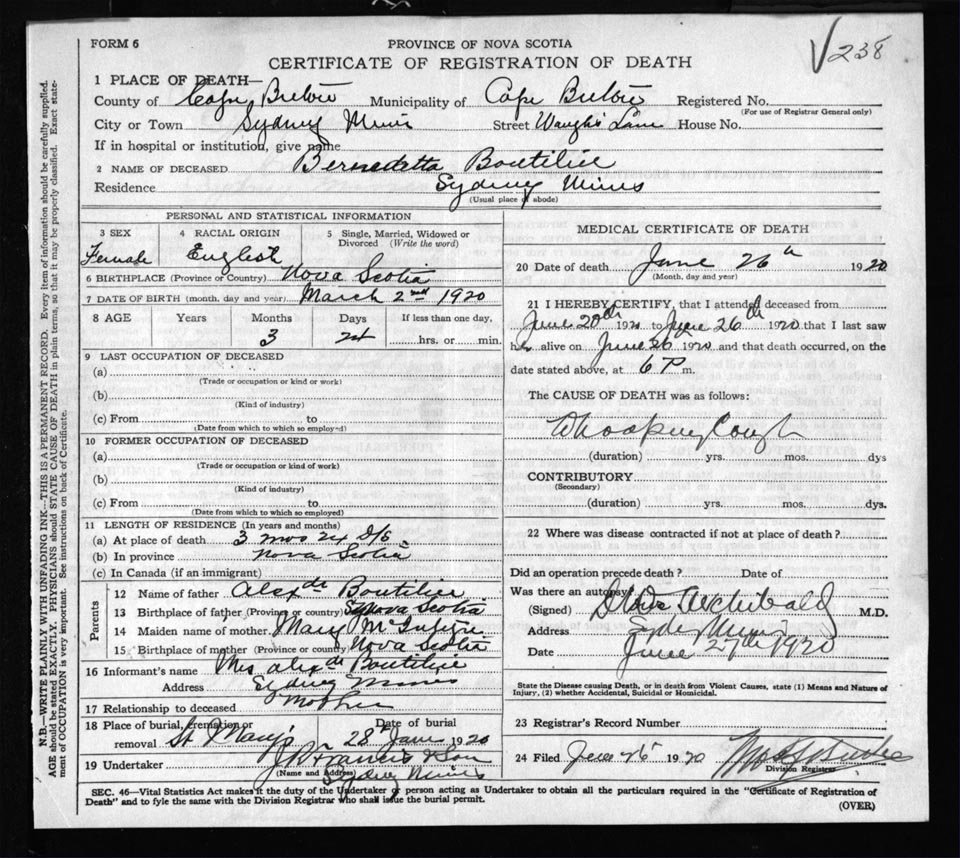 FORM 6
PROVINCE OF NOVA SCOTIA
CERTIFICATE OF REGISTRATION OF DEATH
V238
1 PLACE OF DEATH—
County of Cape Breton Municipality of Cape Breton Registered No.
(For use of Registrar General only)
City or Town Sydney Mines Street Waugh's Lane House No.
If in hospital or institution, give name
2 NAME OF DECEASED Bernedetta Boutilier
Residence Sydney Mines
(Usual place of abode)
PERSONAL AND STATISTICAL INFORMATION
3 SEX 4 RACIAL ORIGIN 5 Single, Married, Widowed or
Divorced (Write the word)
Female English
6 BIRTHPLACE (Province or Country) Nova Scotia
7 DATE OF BIRTH (month, day and year) March 2nd 1920
8 AGE Years Months Days If less than one day,
3 24 hrs. or min.
9 LAST OCCUPATION OF DECEASED
(a)
(Trade or occupation or kind or work)
(b)
(Kind of industry)
(c) From to
(Date from which to which so employed)
10 FORMER OCCUPATION OF DECEASED
(a)
(Trade or occupation or kind of work)
(b)
(Kind of industry)
(c) From to
(Date from which to which so employed)
11 LENGTH OF RESIDENCE (In years and months)
(a) At place of death 3 mos 24 D/s
(b) In province Nova Scotia
(c) In Canada (if an immigrant)
Parents
12 Name of father Alexdr Boutilier
13 Birthplace of father (Province or country) Nova Scotia
14 Maiden name of mother Mary
15 Birthplace of mother (Province or country) Nova Scotia
16 Informant's name Mrs Alexdr Boutilier
Address Sydney Mines
17 Relationship to deceased Mother
18 Place of burial, cremation or Date of burial
removal St Marys 28th June 1920
19 Undertaker J Francis & Son
(Name and Address) Sydney Mines
MEDICAL CERTIFICATE OF DEATH
20 Date of death June 26th 1920
(Month, day and year)
21 I HEREBY CERTIFY, that I attended deceased from
June 20th 192 to June 26th 1920 that I last saw
her alive on June 26 1920 and that death occurred, on the
date stated above, at 6 P m.
The CAUSE OF DEATH was as follows:
Whooping Cough
(duration) yrs. mos. dys
CONTRIBUTORY
(Secondary)
(duration) yrs. mos. dys.
22 Where was disease contracted if not at place of death?
Did an operation precede death? Date of
Was there an autopsy?
(Signed) Archibald M.D.
Address Sydney Mines
Date June 27th 1920
State the Disease causing Death, or in death from Violent Causes, state (1) Means and Nature of
Injury, (2) whether Accidental, Suicidal or Homicidal.
23 Registrar's Record Number
24 Filed 1920
Division Registrar
SEC. 46—Vital Statistics Act makes it the duty of the Undertaker or person acting as Undertaker to obtain all the particulars required in the "Certificate of Registration of
Death" and to fyle the same with the Division Registrar who shall issue the burial permit.
(OVER)
N.B.—WRITE PLAINLY WITH UNFADING INK—THIS IS A PERMANENT RECORD. Every item of information should be carefully supplied.
AGE should be stated EXACTLY. PHYSICIANS should STATE CAUSE OF DEATH in plain terms, so that it may be properly classified. Exact state-
ment of OCCUPATION is very important. See instructions on back of Certificate.